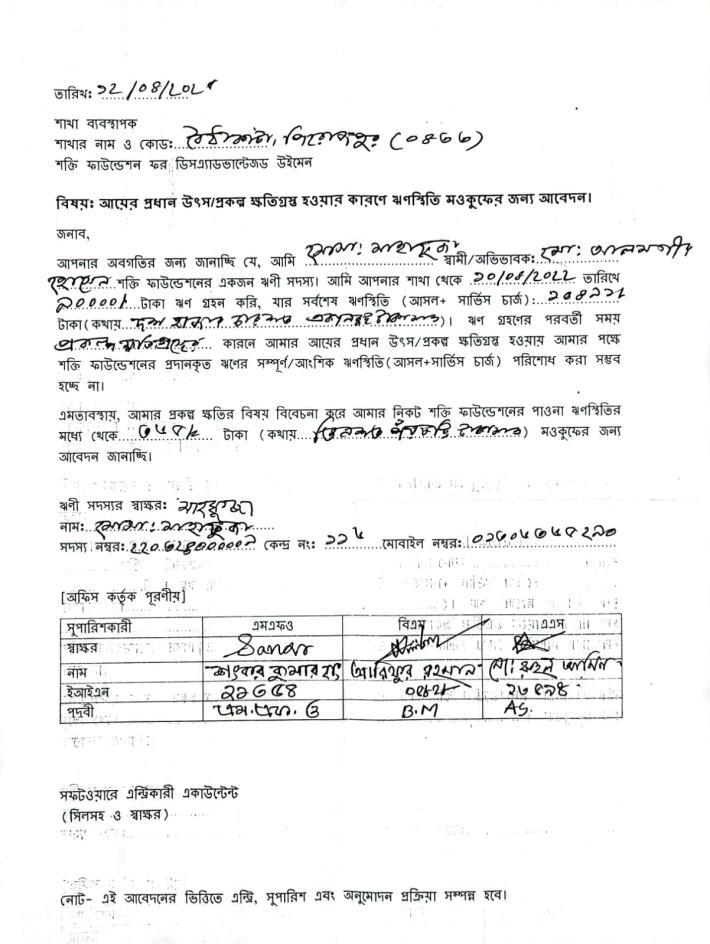 তারিখ: ১২/০৪/২০২৫
শাখা ব্যবস্থাপক
শাখার নাম ও কোড: বৈঠাকাটা, পিরোজপুর (০৪৬৬)
শক্তি ফাউন্ডেশন ফর ডিসএ্যাডভান্টেজড উইমেন
বিষয়: আয়ের প্রধান উৎস/প্রকল্প ক্ষতিগ্রস্থ হওয়ার কারণে ঋণস্থিতি মওকুফের জন্য আবেদন।
জনাব,
আপনার অবগতির জন্য জানাচ্ছি যে, আমি মোসা: মাহফুজা স্বামী/অভিভাবক: মো: আলমগীর
হোসেন শক্তি ফাউন্ডেশনের একজন ঋণী সদস্য। আমি আপনার শাখা থেকে ২০/০৪/২০২২ তারিখে
টাকা ঋণ গ্রহন করি, যার সর্বশেষ ঋণস্থিতি (আসল+ সার্ভিস চার্জ):
টাকা(কথায় দশ হাজার টাকা)। ঋণ গ্রহণের পরবর্তী সময়
প্রকল্প ক্ষতিগ্রস্থের কারনে আমার আয়ের প্রধান উৎস/প্রকল্প ক্ষতিগ্রস্থ হওয়ায় আমার পক্ষে
শক্তি ফাউন্ডেশনের প্রদানকৃত ঋণের সম্পূর্ণ/আংশিক ঋণস্থিতি(আসল+সার্ভিস চার্জ) পরিশোধ করা সম্ভব
হচ্ছে না।
এমতাবস্থায়, আমার প্রকল্প ক্ষতির বিষয় বিবেচনা করে আমার নিকট শক্তি ফাউন্ডেশনের পাওনা ঋণস্থিতির
মধ্যে থেকে টাকা (কথায় টাকা) মওকুফের জন্য
আবেদন জানাচ্ছি।
ঋণী সদস্যর স্বাক্ষর: মাহফুজা
নাম: মোসা: মাহফুজা
সদস্য নম্বর: কেন্দ্র নং: মোবাইল নম্বর:
[অফিস কর্তৃক পূরণীয়]
সুপারিশকারী এমএফও বিএম এএস
স্বাক্ষর
নাম শংকর কুমার আরিফুর রহমান মো: রুহুল আমিন
ইআইএন
পদবী এম.এফ.ও B.M AS.
সফটওয়ারে এন্ট্রিকারী একাউন্টেন্ট
(সিলসহ ও স্বাক্ষর)
নোট- এই আবেদনের ভিত্তিতে এন্ট্রি, সুপারিশ এবং অনুমোদন প্রক্রিয়া সম্পন্ন হবে।